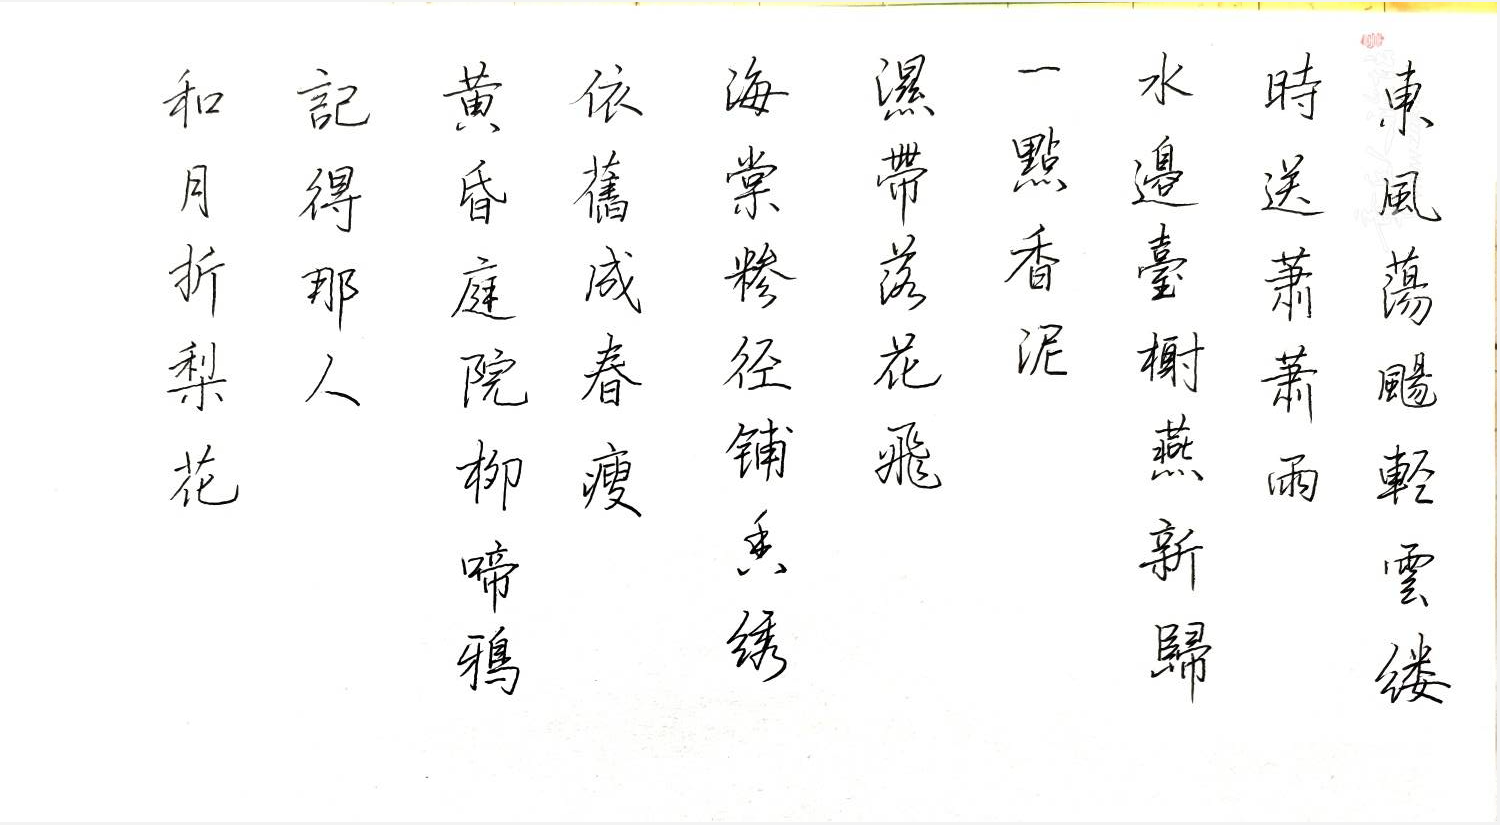 東風蕩颺輕雲缕
時送蕭蕭雨
水邊臺榭燕新歸
一點香泥
濕帶落花飛
海棠糝径铺香绣
依舊成春瘦
黄昏庭院柳啼鴉
記得那人
和月折梨花